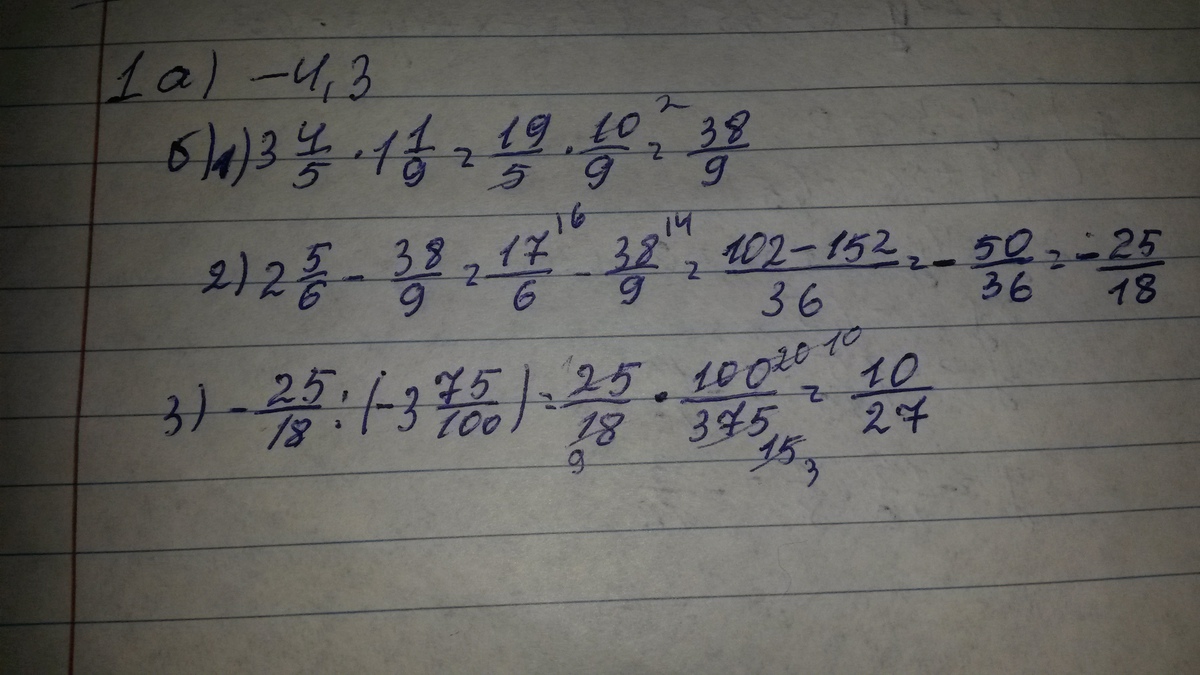 1 а) -4,3
б) 1) 3 4/5 · 1 1/9 = 19/5 · 10/9 2 = 38/9
2) 2 5/6 - 38/9 = 17/6 16 - 38/9 14 = 102-152/36 = - 50/36 = - 25/18
3) - 25/18 : (-3 75/100) = 1 25/18 9 · 100/375 20 10 15 3 = 10/27